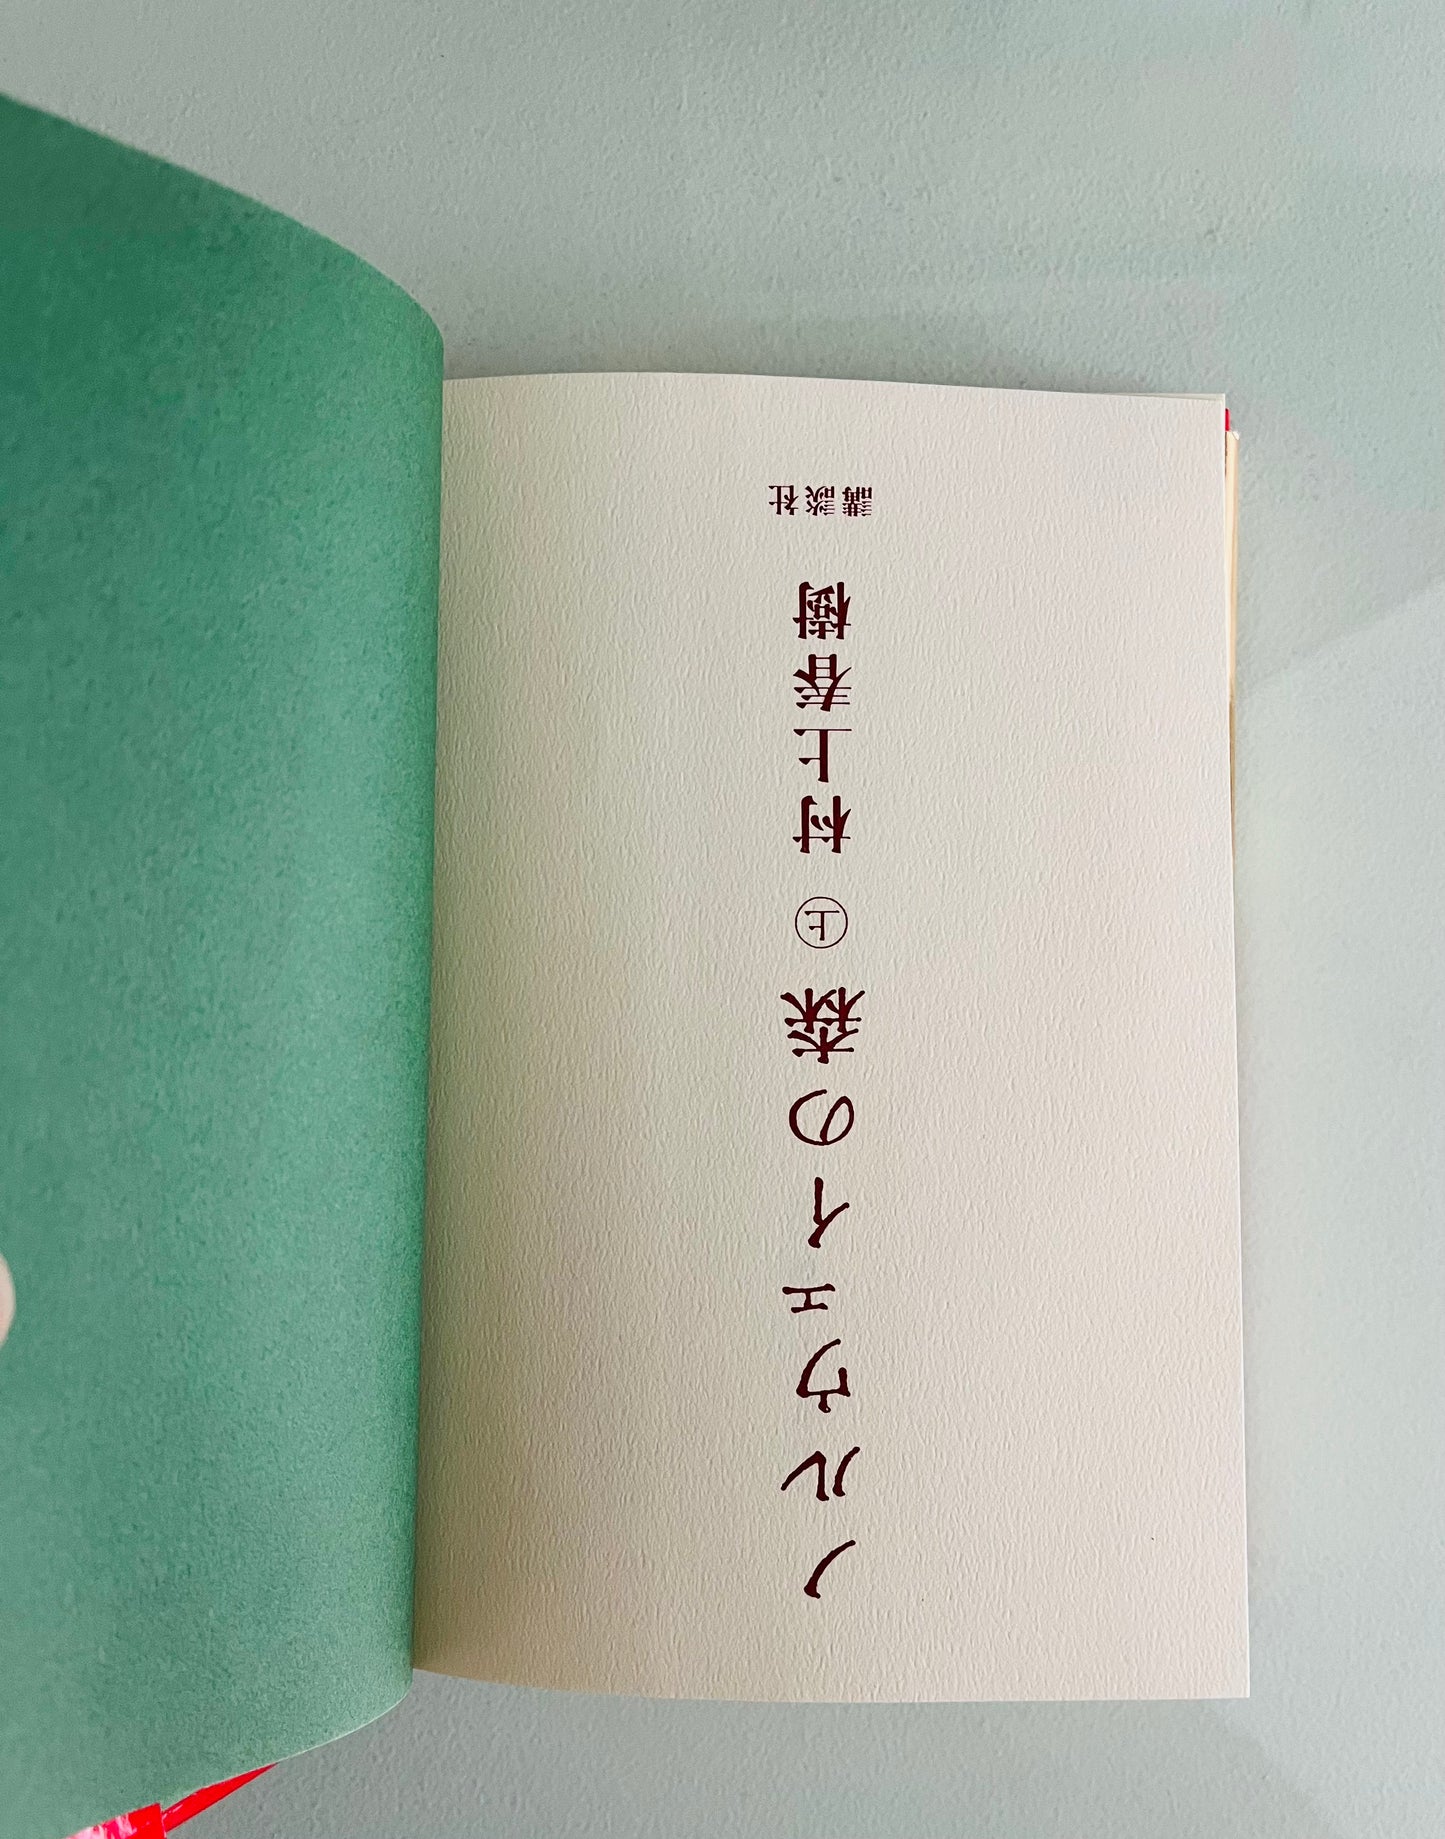 ノルウェイの森 ㊤ 村上春樹
講談社